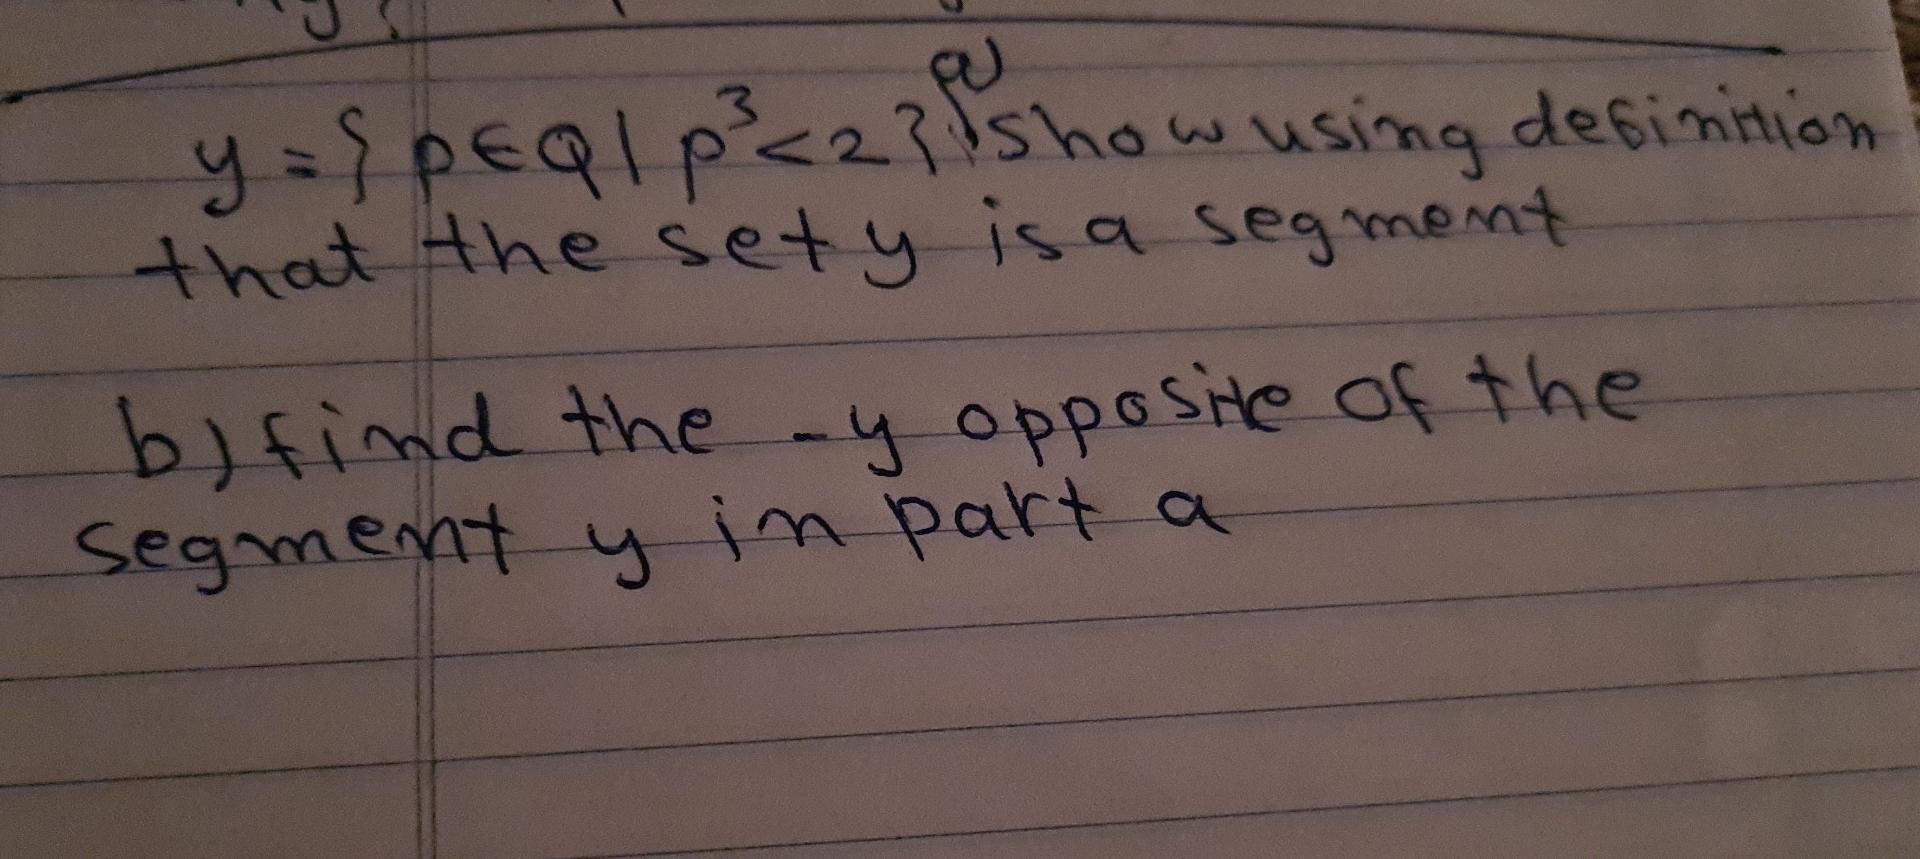 a)
y = { p ∈ Q | p³ < 2 } show using definition
that the set y is a segment
b) find the -y opposite of the
segment y in part a